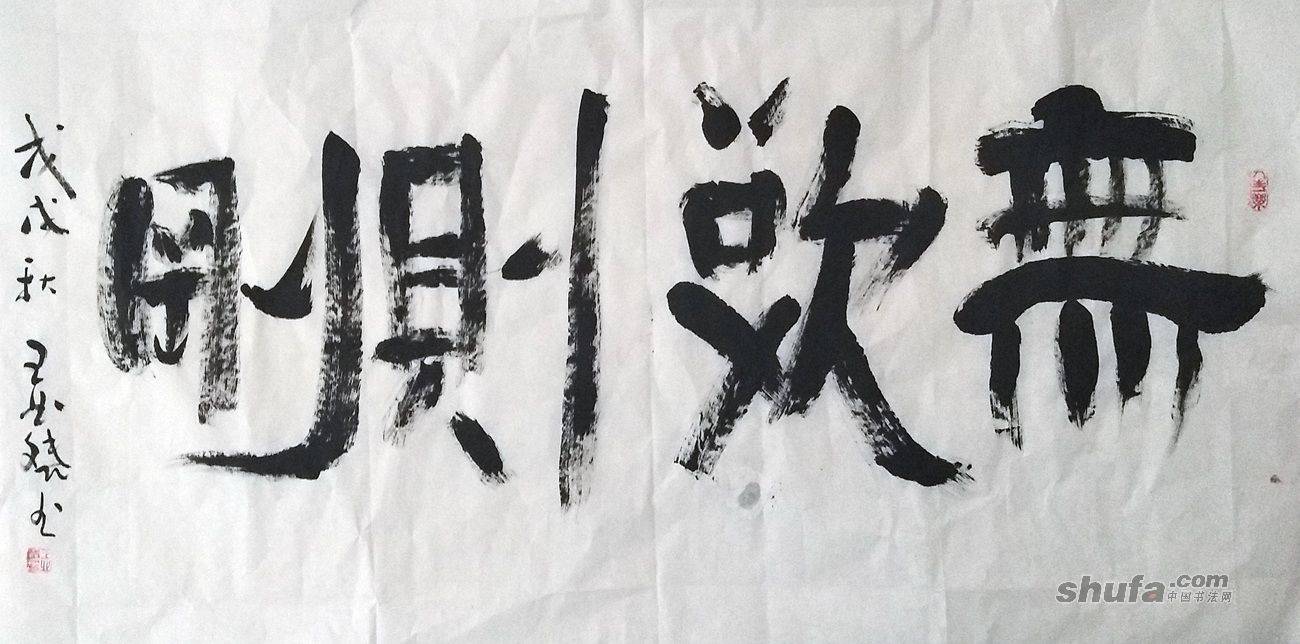 無欲則剛
戊戌秋 王
书
shufa.com
中国书法网